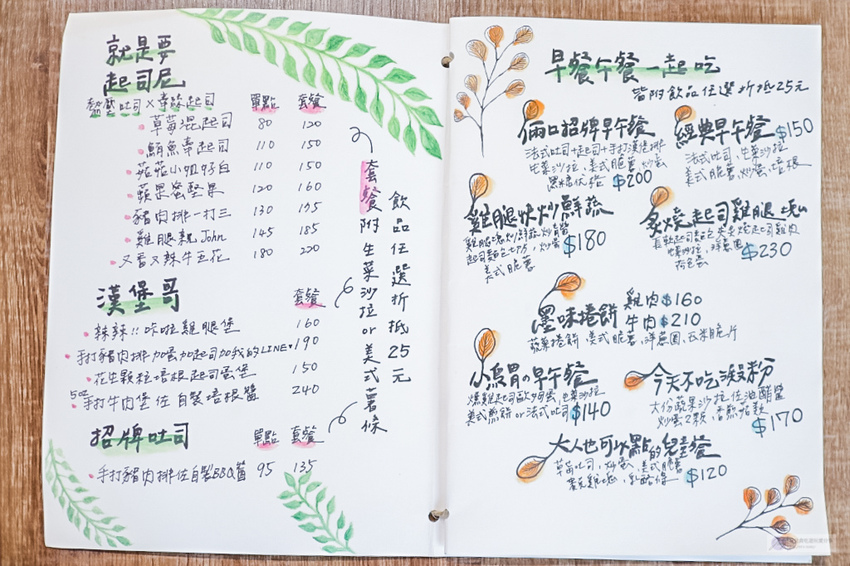 就是要
起司尼
熱壓吐司×奇政起司 單點 套餐
草莓混起司 80 120
鮪魚牽起司 110 150
菇菇小姐好白 110 150
蘋果蜜堅果 120 160
豬肉排一打三 130
雞腿親John 145 185
又香又辣牛五花 180 220
套餐附生菜沙拉or美式薯條
飲品任選折抵25元
漢堡哥 套餐
辣辣!!咔啦雞腿堡 160
手打豬肉排加蛋加起司加我的LINE♥ 190
花生顆粒培根起司蛋堡 150
5oz手打牛肉堡佐自製培根醬 240
招牌吐司 單點 套餐
手打豬肉排佐自製BBQ醬 95 135
早餐午餐一起吃
皆附飲品任選折抵25元
倆口招牌早午餐
法式吐司+起司+手打漢堡排
生菜沙拉,美式脆薯,炒蛋
$200
經典早午餐 $150
法式吐司,生菜沙拉
美式脆薯,炒蛋,培根
雞腿快炒鮮蔬
$180
美式脆薯
炙燒起司雞腿
$230
墨味捲餅 雞肉$160
牛肉$210
蔬菜捲餅,美式脆薯,洋蔥圈,玉米脆片
小鳥胃の早午餐
美式煎餅or法式吐司 $140
今天不吃澱粉
大份蔬果沙拉佐油醋醬
炒蛋2顆,香煎菇菇
$170
大人也可以點的兒童餐
草莓吐司,炒蛋,美式脆薯
$120